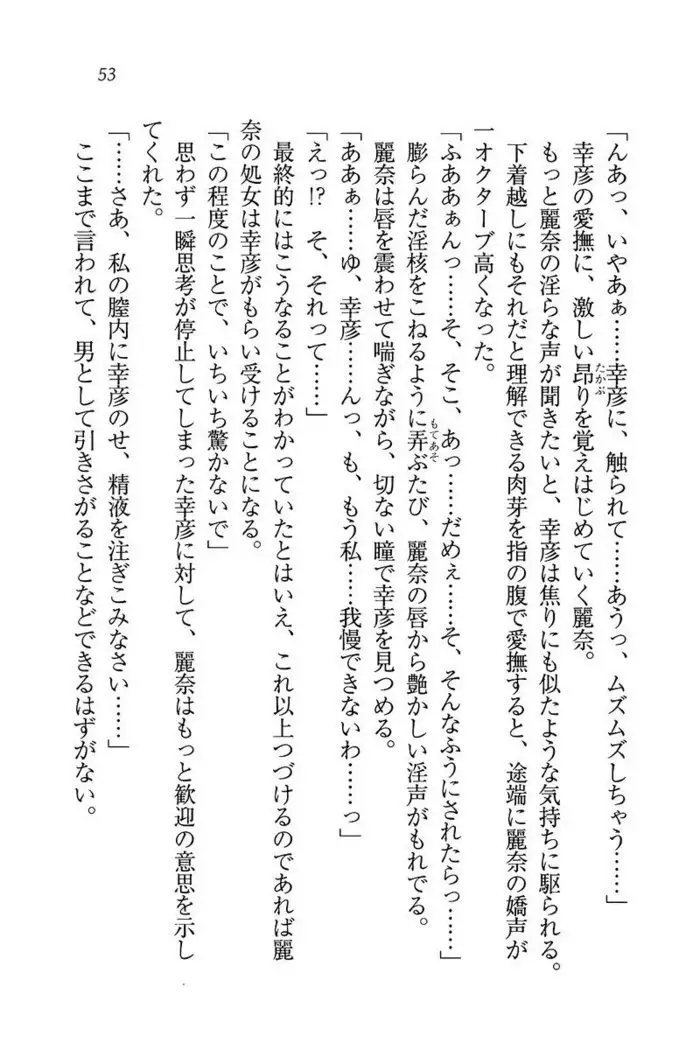 53
「んあっ、いやあぁ……幸彦に、触られて……あうっ、ムズムズしちゃう……」
幸彦の愛撫に、激しい昂りを覚えはじめていく麗奈。
たかぶ
もっと麗奈の淫らな声が聞きたいと、幸彦は焦りにも似たような気持ちに駆られる。
下着越しにもそれだと理解できる肉芽を指の腹で愛撫すると、途端に麗奈の嬌声が
一オクターブ高くなった。
「ふああぁんっ……そ、そこ、あっ……だめぇ……そ、そんなふうにされたらっ……」
膨らんだ淫核をこねるように弄ぶたび、麗奈の唇から艶かしい淫声がもれでる。
もてあそ
麗奈は唇を震わせて喘ぎながら、切ない瞳で幸彦を見つめる。
「ああぁ……ゆ、幸彦……んっ、も、もう私……我慢できないわ……っ」
「えっ!? そ、それって……」
最終的にはこうなることがわかっていたとはいえ、これ以上つづけるのであれば麗
奈の処女は幸彦がもらい受けることになる。
「この程度のことで、いちいち驚かないで」
思わず一瞬思考が停止してしまった幸彦に対して、麗奈はもっと歓迎の意思を示し
てくれた。
「……さあ、私の膣内に幸彦のせ、精液を注ぎこみなさい……」
ここまで言われて、男として引きさがることなどできるはずがない。